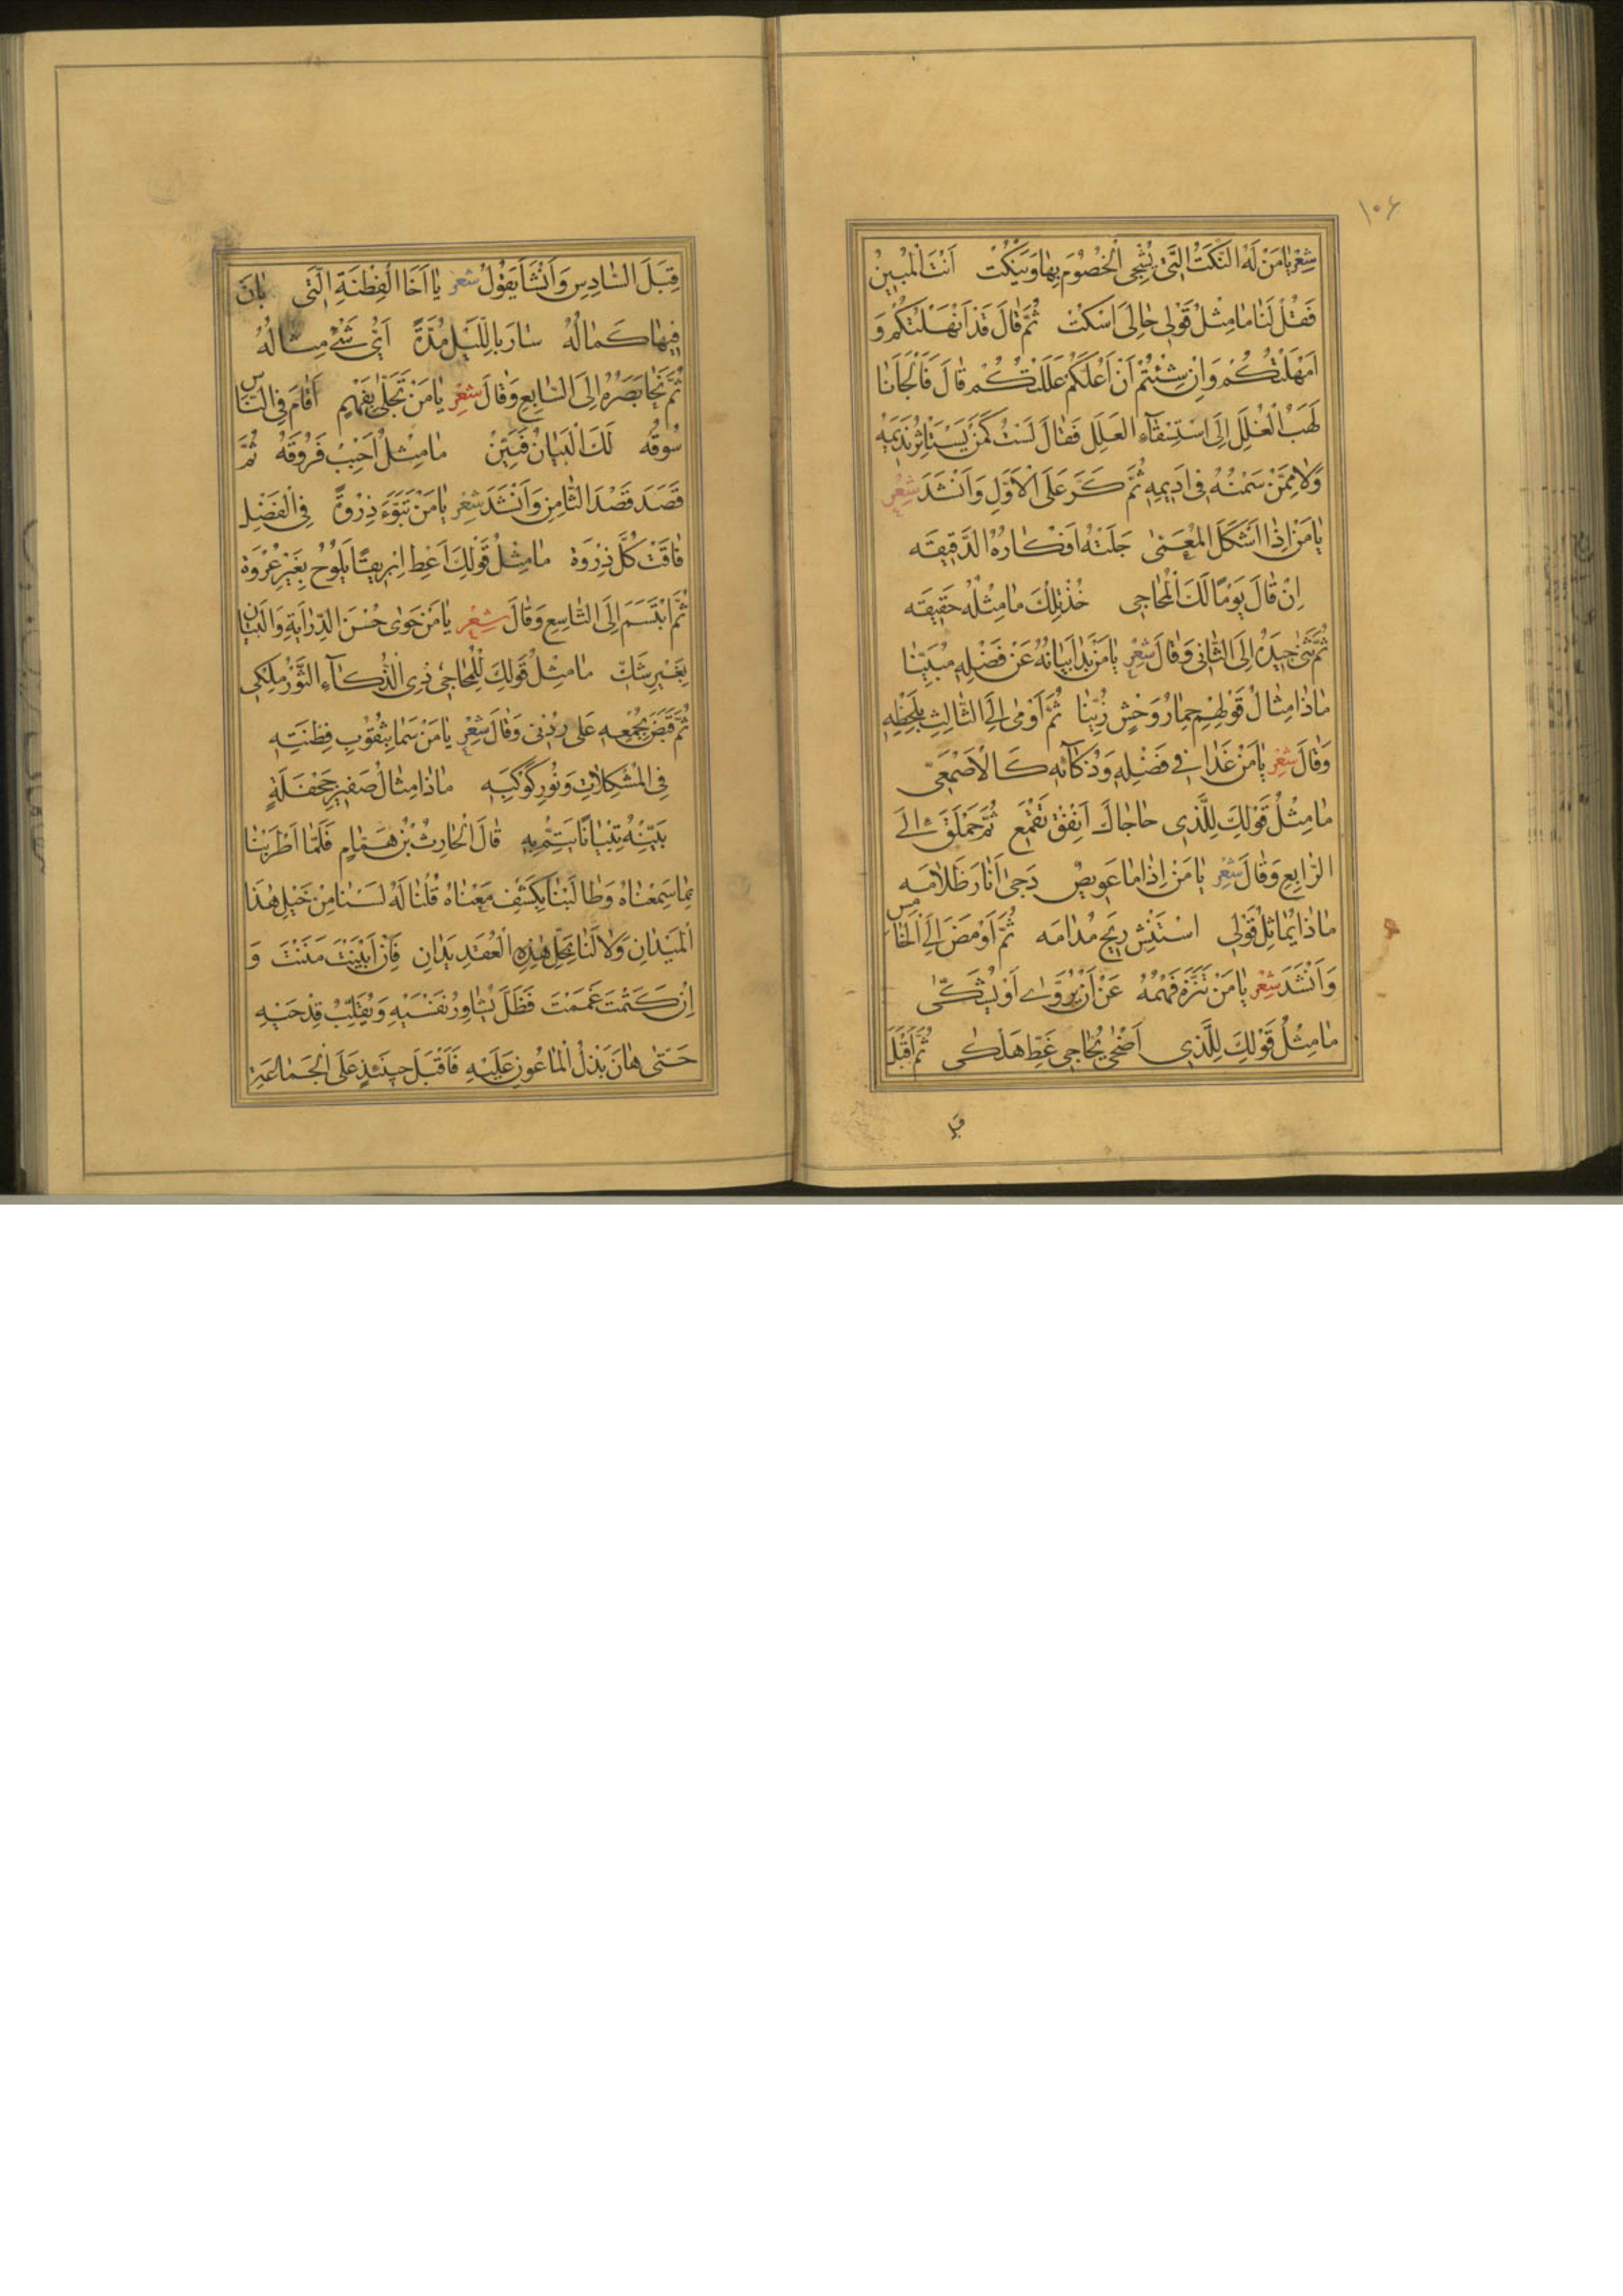 ١٠۶
شِعْرٌ يَا مَنْ لَهُ النُّكَتُ الَّتِي يُشْجِي الْخُصُومَ بِهَا وَيَنْكُتْ اَنْتَ الْمُبِينُ
فَقُلْ لَنَا مَا مِثْلُ قَوْلِي خَالِيَ اسْكُتْ ثُمَّ قَالَ قَدْ اَنْهَلْتُكُمْ وَ
اَمْهَلْتُكُمْ وَاِنْ شِئْتُمْ اَنْ اَعُلَّكُمْ عَلَلْتُكُمْ قَالَ فَاَلْجَاَنَا
لَهَبُ الْغُلَلِ اِلَى اسْتِسْقَآءِ الْعَلَلِ فَقَالَ لَسْتُ كَمَنْ يَسْتَاْثِرُ نَدِيمَهُ
وَلَا مِمَّنْ سَمْنُهُ فِي اَدِيمِهِ ثُمَّ كَرَّ عَلَى الْاَوَّلِ وَاَنْشَدَ شِعْرٌ
يَا مَنْ اِذَا اَشْكَلَ الْمُعَمَّى جَلَتْهُ اَفْكَارُهُ الدَّقِيقَه
اِنْ قَالَ يَوْمًا لَكَ الْمُحَاجِي خُذْ تِلْكَ مَا مِثْلُهُ حَقِيقَه
ثُمَّ ثَنَى جِيدَهُ اِلَى الثَّانِي وَقَالَ شِعْرٌ يَا مَنْ بَدَا بَيَانُهُ عَنْ فَضْلِهِ مُبَيِّنَا
مَاذَا مِثَالُ قَوْلِهِمْ حِمَارُ وَحْشٍ زُيِّنَا ثُمَّ اَوْمَى اِلَى الثَّالِثِ بِلَحْظِهِ
وَقَالَ شِعْرٌ يَا مَنْ غَدَا فِي فَضْلِهِ وَذَكَآئِهِ كَالْاَصْمَعِيّ
مَا مِثْلُ قَوْلِكَ لِلَّذِي حَاجَاكَ اَنْفِقْ تَقْمَعِ ثُمَّ حَمْلَقَ اِلَى
الرَّابِعِ وَقَالَ شِعْرٌ يَا مَنْ اِذَا مَا عَوِيصٌ دَجَى اَنَارَ ظَلَامَه
مَاذَا يُمَاثِلُ قَوْلِي اسْتَنْشِ رِيحَ مُدَامَه ثُمَّ اَوْمَضَ اِلَى الْخَامِسِ
وَاَنْشَدَ شِعْرٌ يَا مَنْ تَنَزَّهَ فَهْمُهُ عَنْ اَنْ يُرَوِّيَ اَوْ يُشَكِّي
مَا مِثْلُ قَوْلِكَ لِلَّذِي اَضْحَى يُحَاجِي غَطِّ هَلْكَى ثُمَّ اَقْبَلَ
قِبَلَ
قِبَلَ السَّادِسِ وَاَنْشَاَ يَقُولُ شعر يَا اَخَا الْفِطْنَةِ الَّتِي بَانَ
فِيهَا كَمَالُهُ سَارَ بِاللَّيْلِ مُدَّةً اَيُّ شَيْءٍ مِثَالُهُ
ثُمَّ نَحَا بَصَرَهُ اِلَى السَّابِعِ وَقَالَ شِعْرٌ يَا مَنْ تَحَلَّى بِفَهْمٍ اَقَامَ فِي النَّاسِ
سُوقَه لَكَ الْبَيَانُ فَبَيِّنْ مَا مِثْلُ اَحْبِبْ فَرُوقَهُ ثُمَّ
قَصَدَ قَصْدَ الثَّامِنِ وَاَنْشَدَ شِعْر يَا مَنْ تَبَوَّءَ ذِرْوَةً فِي الْفَضْلِ
فَاقَتْ كُلَّ ذِرْوَة مَا مِثْلُ قَوْلِكَ اَعْطِ اِبْرِيقًا يَلُوحُ بِغَيْرِ عُرْوَة
ثُمَّ ابْتَسَمَ اِلَى التَّاسِعِ وَقَالَ شِعْر يَا مَنْ حَوَى حُسْنَ الدِّرَايَةِ وَالْبَيَانِ
بِغَيْرِ شَكٍّ مَا مِثْلُ قَوْلِكَ لِلْمُحَاجِي ذِي الذَّكَآءِ الثَّوْرُ مِلْكِي
ثُمَّ قَبَضَ بِجُمْعِهِ عَلَى رُدْنِي وَقَالَ شِعْرٌ يَا مَنْ سَمَا بِثُقُوبِ فِطْنَتِهِ
فِي الْمُشْكِلَاتِ وَنُورِ كَوْكَبِهِ مَاذَا مِثَالُ صَفِيرِ جَحْفَلَةٍ
بَيِّنْهُ تِبْيَانًا يَتِمُّ بِهِ قَالَ الْحَارِثُ بْنُ هَمَّامٍ فَلَمَّا اَطْرَبَنَا
بِمَا سَمِعْنَاهُ وَطَالَبَنَا بِكَشْفِ مَعْنَاهُ قُلْنَا لَهُ لَسْنَا مِنْ خَيْلِ هَذَا
الْمَيْدَانِ وَلَا لَنَا بِحَلِّ هَذِهِ الْعُقَدِ يَدَانِ فَاِنْ اَبَنْتَ مَنَنْتَ وَ
اِنْ كَتَمْتَ غَمَمْتَ فَظَلَّ يُشَاوِرُ نَفْسَيْهِ وَيُقَلِّبُ قِدْحَيْهِ
حَتَّى هَانَ بَذْلُ الْمَاعُونِ عَلَيْهِ فَاَقْبَلَ حِينَئِذٍ عَلَى الْجَمَاعَةِ